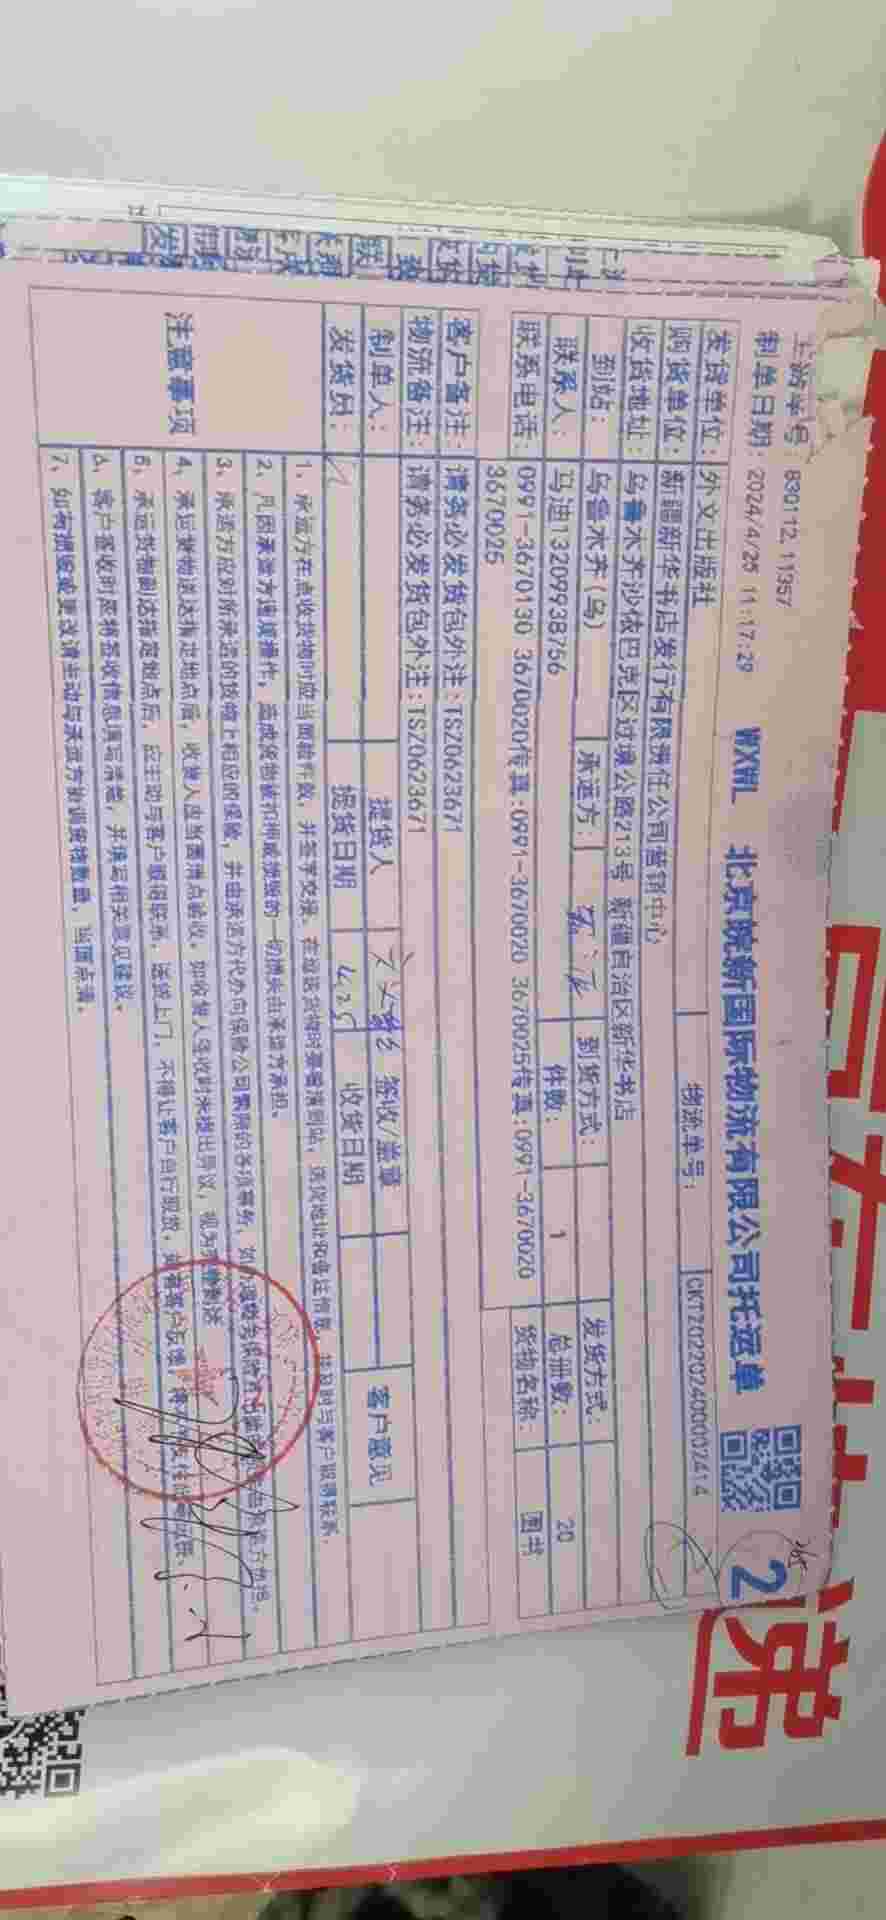 上游单号：830112, 11357
制单日期：2024/4/25 11:17:29
WXWL 北京皖新国际物流有限公司托运单
2
发货单位：外文出版社
物流单号：CKTZ0220240002414
购货单位：新疆新华书店发行有限责任公司营销中心
收货地址：乌鲁木齐沙依巴克区过境公路213号 新疆自治区新华书店
到站：乌鲁木齐(乌)
承运方：
到货方式：
发货方式：
联系人：马迪13209938766
件数：1
总册数：20
联系电话：0991-3670130 3670020传真:0991-3670020 3670025传真:0991-3670020
3670025
货物名称：图书
客户备注：请务必发货包外注:TSZ0623671
物流备注：请务必发货包外注:TSZ0623671
制单人：
提货人
签收/盖章
客户意见
发货员：
提货日期 4.25
收货日期
注意事项
1、承运方在点收货物时应当面验件数，并签字交接。在运送货物时要看清到站，送货地址和备注信息，并及时与客户取得联系.
2、凡因承运方违规操作，造成货物被扣押或损毁的一切损失由承运方承担.
3、承运方应对所承运的货物上相应的保险，并由承运方代办向保险公司索赔的各项事务，
4、承运货物送达指定地点后，收货人应当面清点验收，如收货人接收时未提出异议，视为
5、承运货物到达指定地点后，应主动与客户取得联系，送货上门，不得让客户自行取货，
6、客户签收时要将签收信息填写清楚，并填写相关意见建议。
7、如有损毁或更改请主动与承运方协调货物数量，当面点清。
递